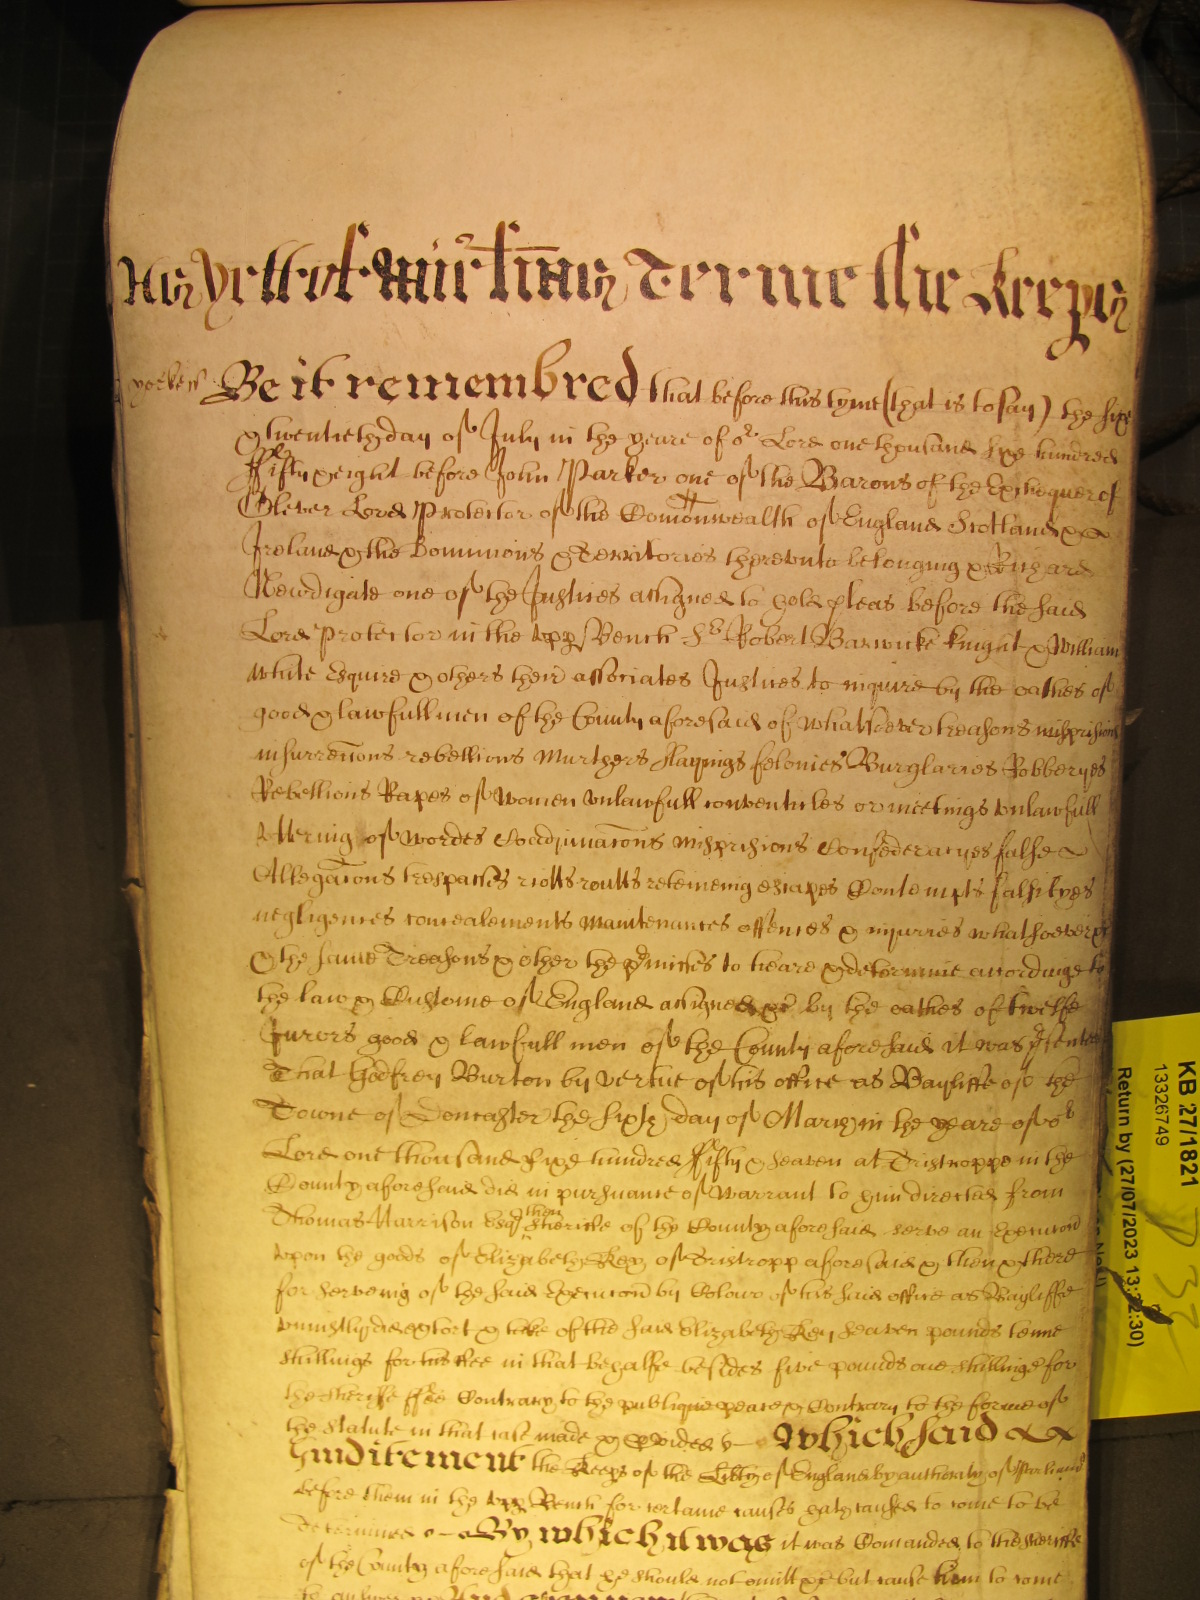 Yett of Terme The Keeps
yorkess Be it remembred that before this tyme (that is to say) the sixe
& twentieth day of July in the yeare of or Lord one thousand sixe hundred
ffifty & eight before John Parker one of the Barons of the Exchequer of
Oliver Lord Protector of the Comonwealth of England Scotland &
Ireland & the Dominions & Territories therevnto belonging & Richard
Newdigate one of the Justices assigned to hold pleas before the said
Lord Protector in the vpp Bench Sr Robert Barwicke knight & William
White Esquire & others their associates Justices to inquire by the oathes of
good & lawfull men of the County aforesaid of whatsoever treasons misprisions
insurrecons rebellions Murthers slayings felonies Burglaries Robberyes
Rebellions Rapes of women vnlawfull conventicles or meetings vnlawfull
vttering of wordes misprisions Confederacyes false
Allegacons trespasses riotts routts reteineing escapes Contempts falsityes
negligences concealements Maintenances offences & injurries whatsoever &
& the same Treasons & other the pmisses to heare & determine accordinge to
the law & Custome of England assigned &c by the oathes of twelfe
Jurors good & lawfull men of the County aforesaid it was psented
That Godfrey Burton by vertue of his office as Bayliffe of the
Towne of Doncaster the sixth day of March in the yeare of or
Lord one thousand sixe hundred ffifty & seaven at Tristroppe in the
County aforesaid did in pursuance of warrant to him directed from
Thomas Harrison Esqr then Sheriffe of the County aforesaid serve an Execucon
vpon the goods of Elizabeth Key of Tristropp aforesaid & then & there
for serveing of the said Execucon by Colour of his said office as Bayliffe
vniustly did extort & take of the said Elizabeth Key seaven pounds tenne
shillings for his ffee in that behalfe besides five pounds one shillinge for
the Sheriffs ffee Contrary to the publique peace & Contrary to the forme of
the Statute in that case made & pvided Which said
Inditement the Keeps of the Libty of England by authority of Parliamt
before them in the vpp Bench for certaine causes hath caused to come to be
determined &c By which it was it was Comanded to the Sheriffe
of the County aforesaid that he should not omitt &c but cause him to come
to answer
KB 27/1821
13326749
Return by (27/07/2023 13:22:30)